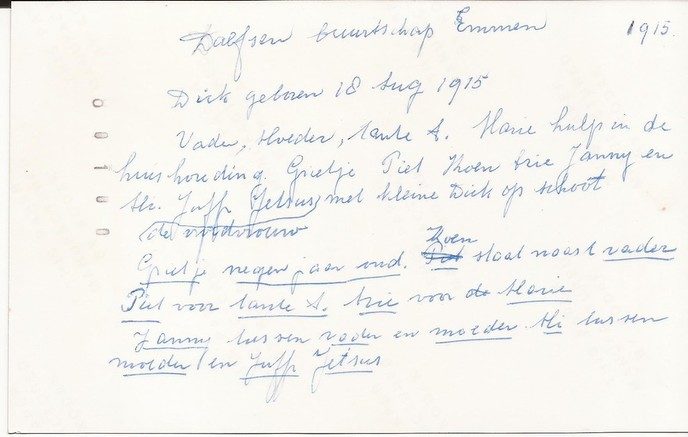 Dalfsen buurtschap Emmen 1915.
Dick geboren 18 Aug 1915
Vader, Moeder, tante A. Marie hulp in de
huishouding. Grietje Piet Koen Arie Janny en
Juffr Jetsus, met kleine Dick op schoot
(de vroedvrouw
Koen
Grietje negen jaar oud. Piet staat naast vader
Piet voor tante A. Arie voor de Marie
Janny tussen vader en moeder Ali tussen
moeder en Juffr Jetsus
00100